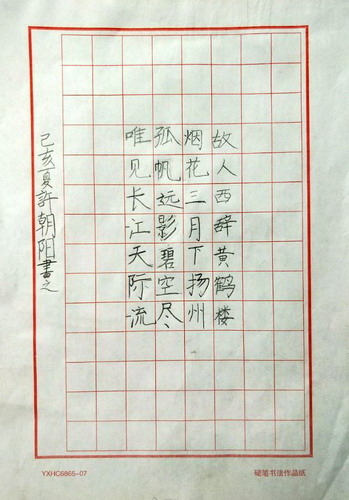 故人西辞黄鹤楼
烟花三月下扬州
孤帆远影碧空尽
唯见长江天际流
己亥夏许朝阳書之
YXHC6865-07
硬笔书法作品纸